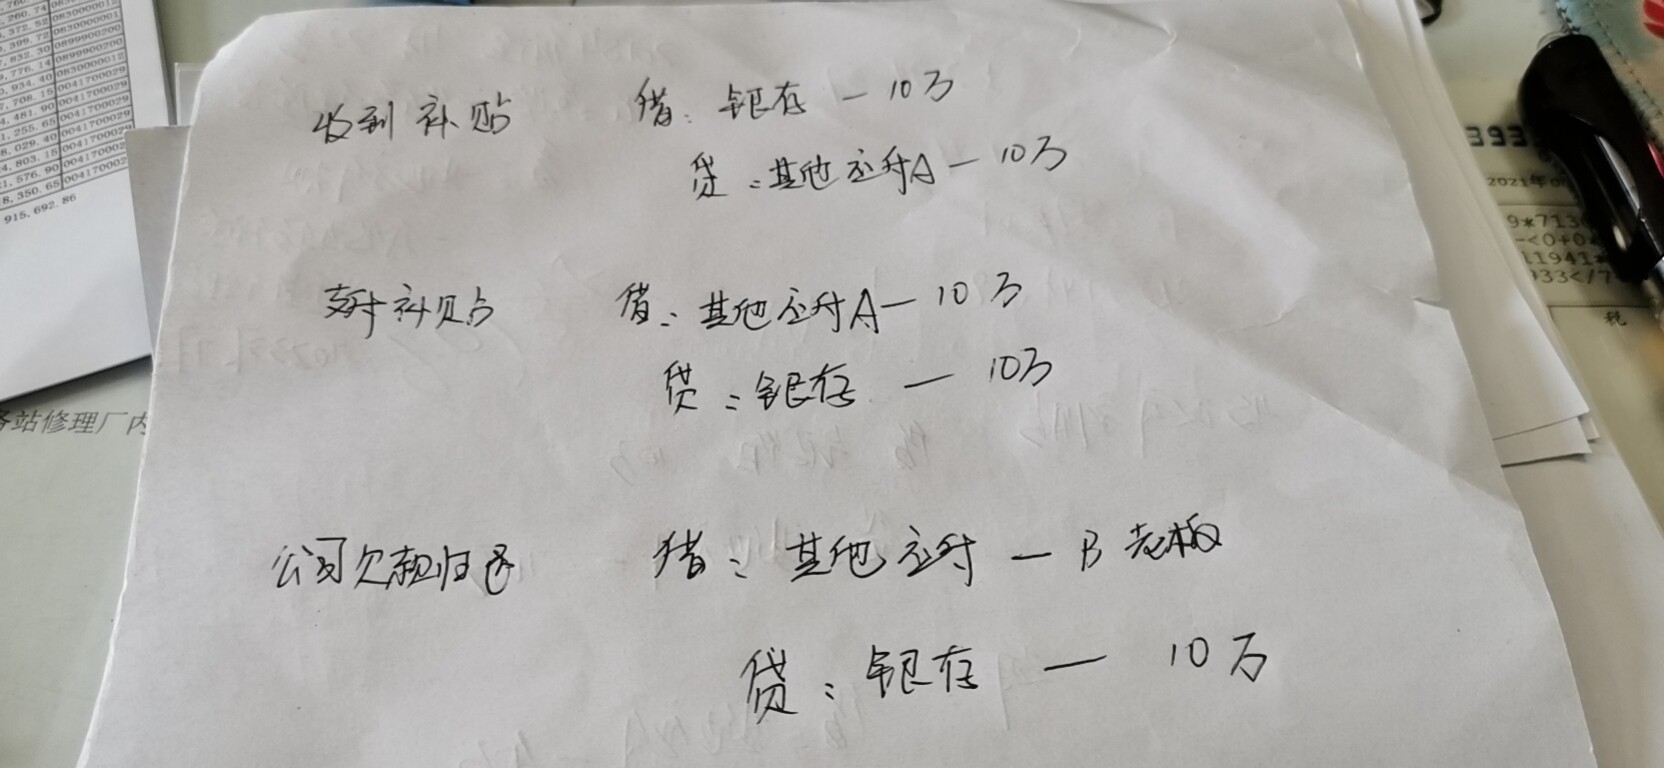 .760.
.260.74
.372.52 0830000012
.399.72 0830000001
.832.30 0899900200
.776.14 0899900200
.934.40 0830000012
.708.15 0041700029
.481.90 0041700029
.255.65 0041700029
.029.40 0041700029
.803.15 0041700029
.576.90 004170002
.350.65 00417000
915,692.86
收到补贴 借：银存 — 10万
贷：其他应付A — 10万
支付补贴 借：其他应付A — 10万
贷：银存 — 10万
公司欠款归还 借：其他应付 — B老板
贷：银存 — 10万
务站修理厂内
393
2021年0
9*713
-<0+0
11941*
933</7
税